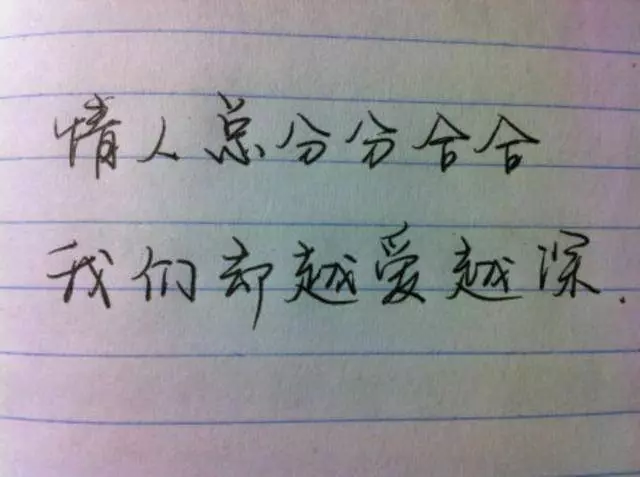 情人总分分合合
我们却越爱越深.